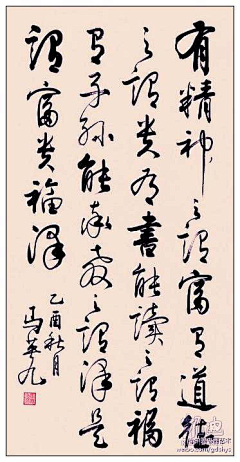 有精神之謂富有道德
之謂貴有書能讀之謂福
有子孫能承教之謂澤是
謂富貴福澤
乙酉秋月
馬英九